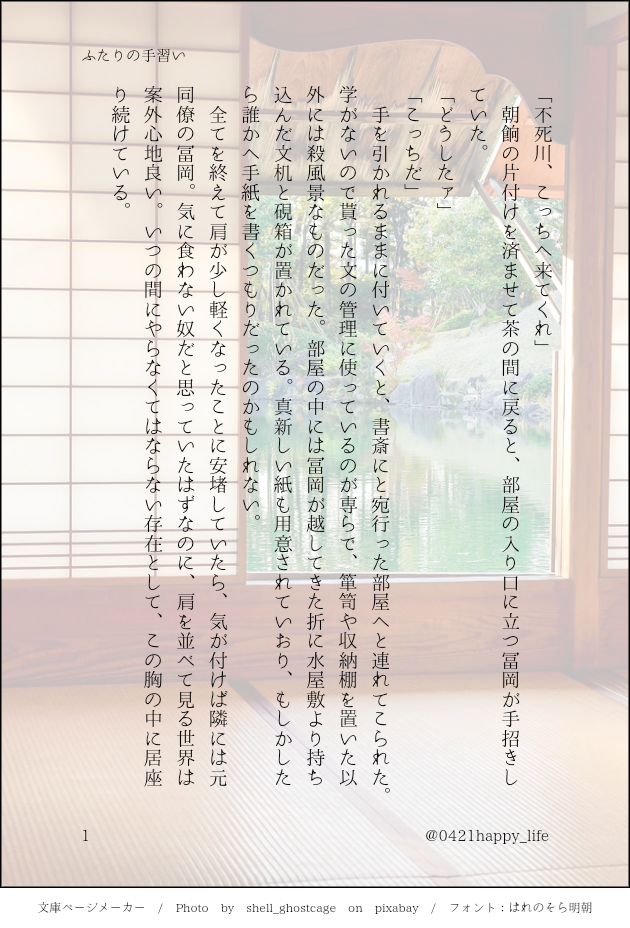 ふたりの手習い
「不死川、こっちへ来てくれ」
　朝餉の片付けを済ませて茶の間に戻ると、部屋の入り口に立つ冨岡が手招きし
ていた。
「どうしたァ」
「こっちだ」
　手を引かれるままに付いていくと、書斎にと宛行った部屋へと連れてこられた。
学がないので貰った文の管理に使っているのが専らで、箪笥や収納棚を置いた以
外には殺風景なものだった。部屋の中には冨岡が越してきた折に水屋敷より持ち
込んだ文机と硯箱が置かれている。真新しい紙も用意されており、もしかした
ら誰かへ手紙を書くつもりだったのかもしれない。
　全てを終えて肩が少し軽くなったことに安堵していたら、気が付けば隣には元
同僚の冨岡。気に食わない奴だと思っていたはずなのに、肩を並べて見る世界は
案外心地良い。いつの間にやらなくてはならない存在として、この胸の中に居座
り続けている。
1
@0421happy_life
文庫ページメーカー / Photo by shell_ghostcage on pixabay / フォント：はれのそら明朝